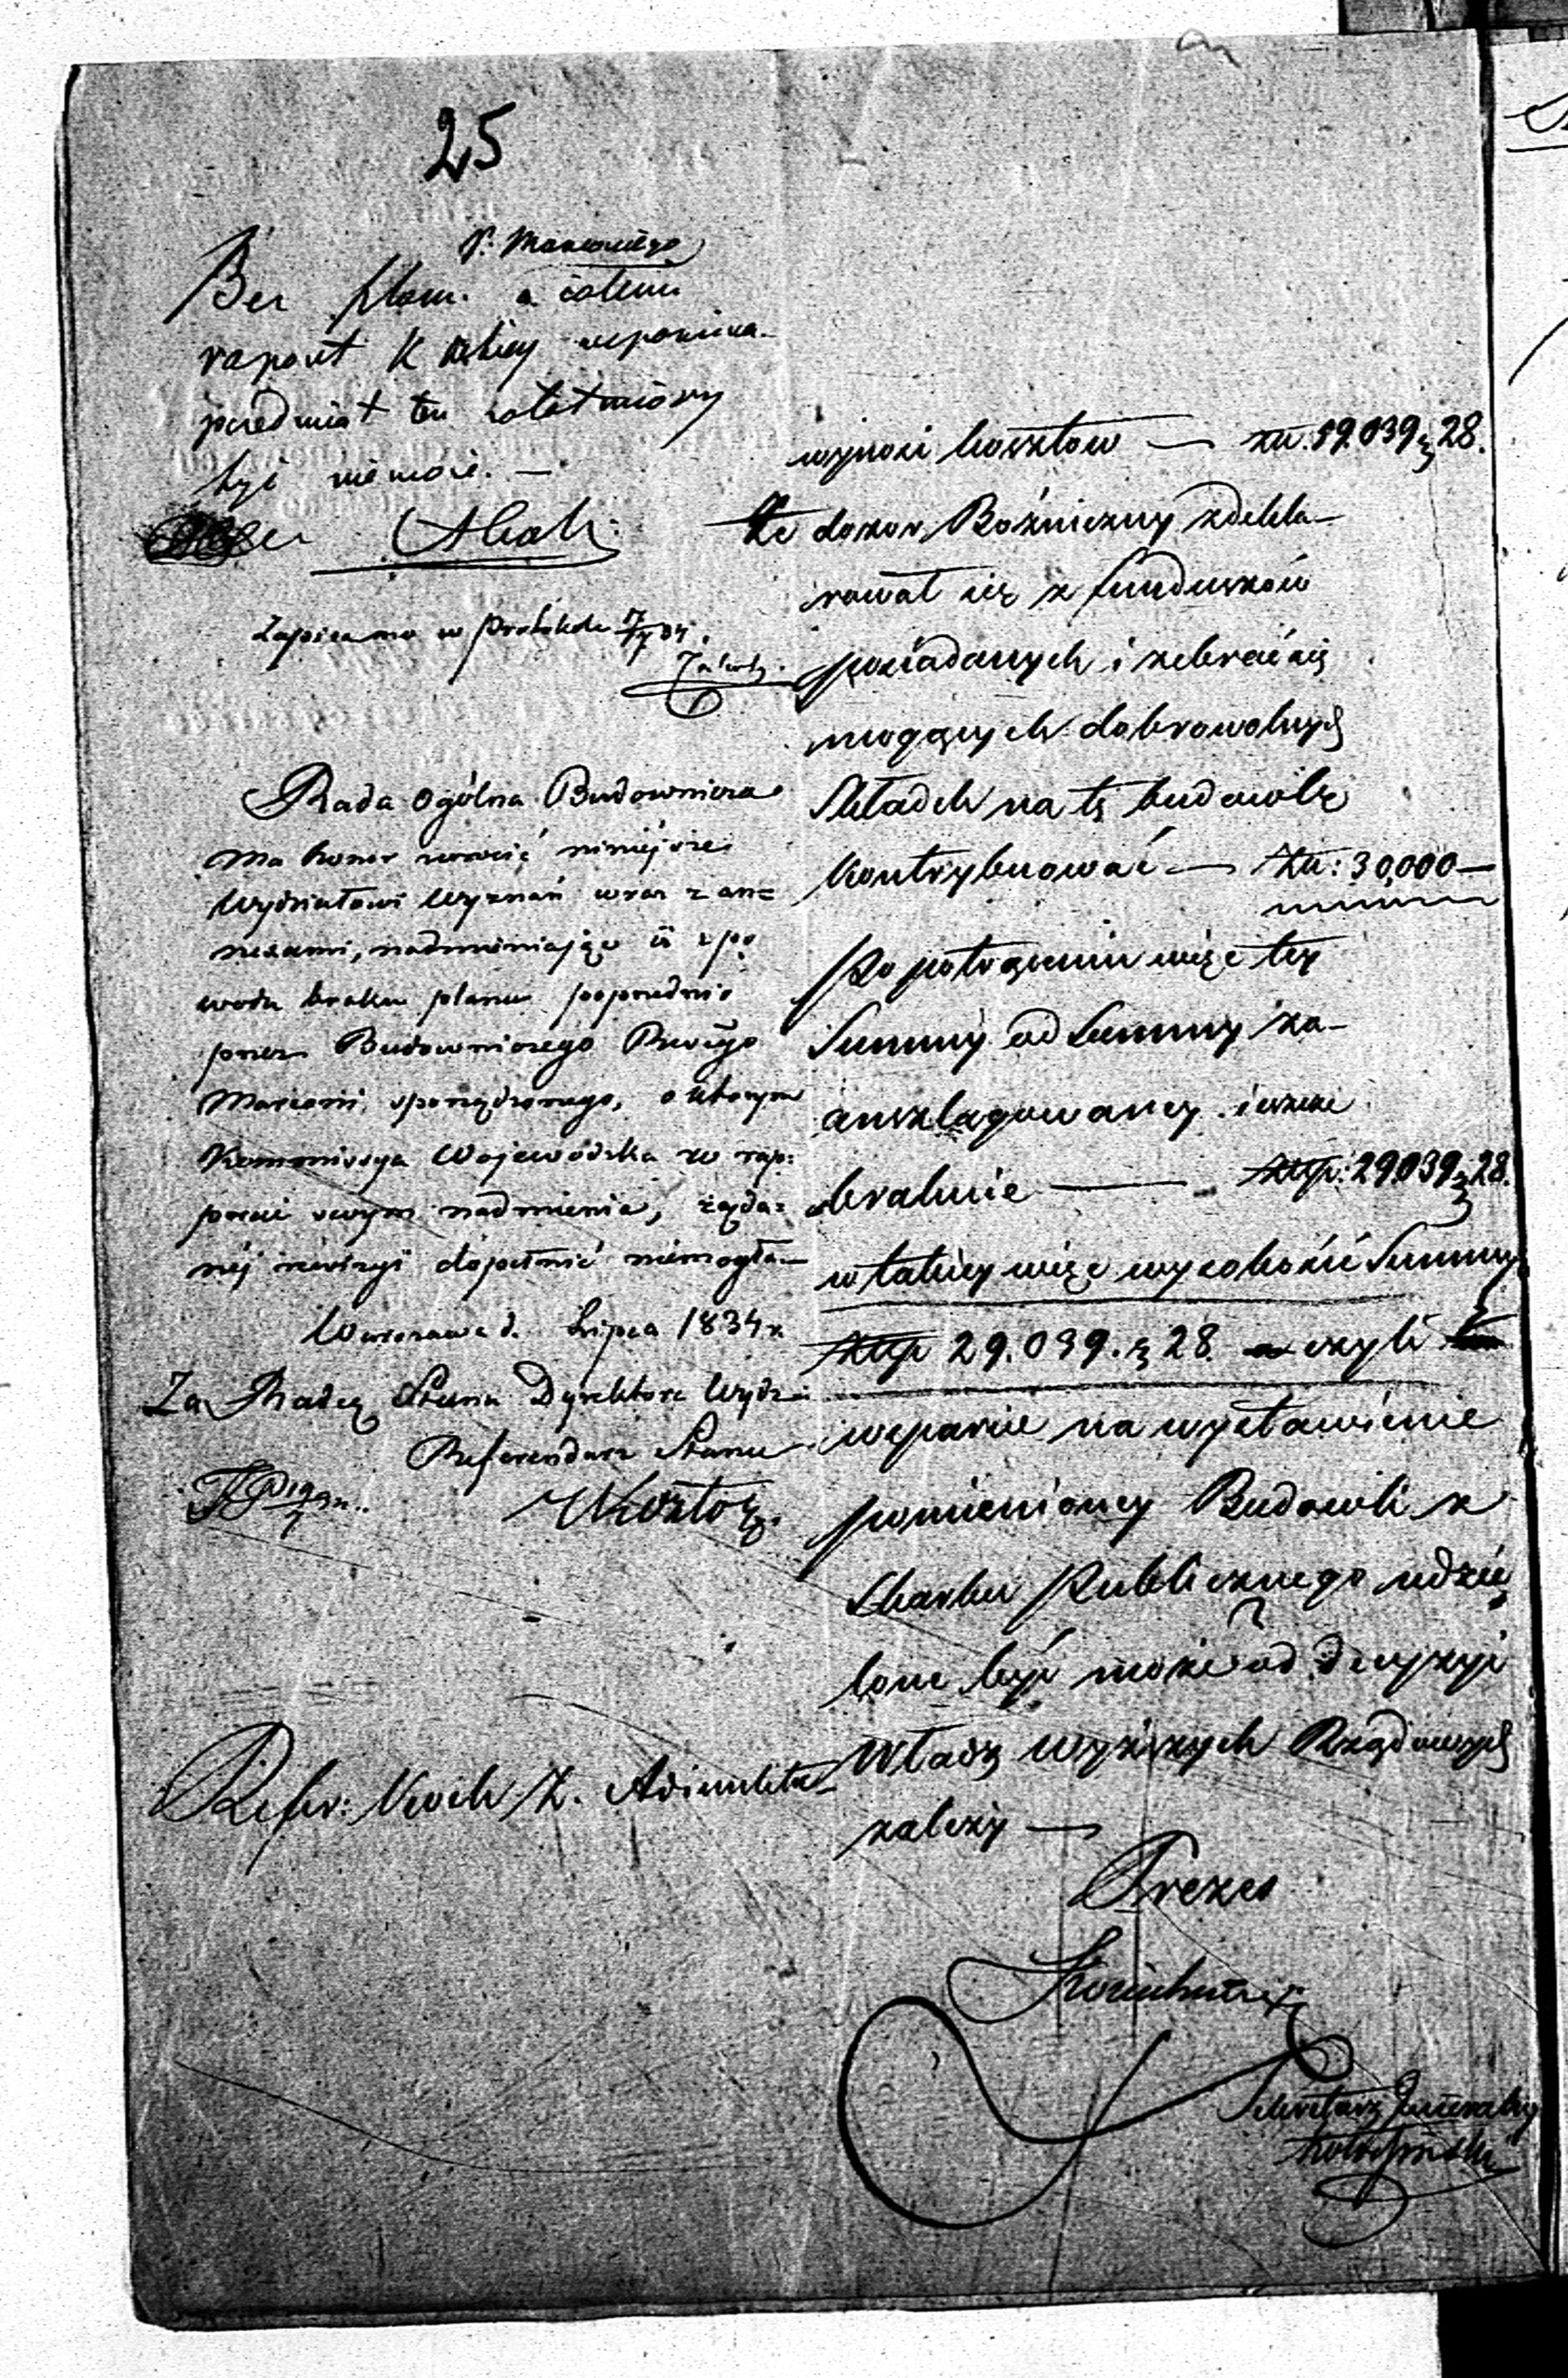 25
P. Marconiego
Bez planu a
raport K
przedmiot ten załatwiony
być nie może. —
Zapisano w protokole
Rada Ogólna Budownicza
ma honor zwrócić niniejsze
Wydziałowi Wyznań wraz z an=
nexami, nadmieniając iż z po
wodu braku planu poprzednio
przez Budowniczego Rządgo
Marconi, sporządzonego, o którym
Kommissya Wojewódzka w rap=
porcie swym nadmienia, żąda=
néj rewizyi dopełnić niemogła —
Warszawa d. Lipca 1834 r.
Za Radcę Stanu Dyrektora Wydz:
Referendarz Stanu
Refer: Koch Z.
wynosi kosztów — zł. 59.039 g 28.
że dozór Bożniczny zdekla—
rował się z funduszów
posiadanych i zebrać się
mogących dobrowolnych
Składek na tę budowlę
kontrybuować — Złł: 30,000 —
Po potrąceniu więc tey
Summy od Summy za—
anszlagowaney ieszcze
brakuie — Złłp: 29.039 g 28.
w takiey więc wysokości Summy
Złłp 29.039. g 28. czyli
wsparcie na wystawienie
pomienioney Budowli z
Skarbu Publicznego udzie
lone być może od decyzyi
Władz wyższych Rządowych
zależy —
Prezes
Sekretarz Jeneralny